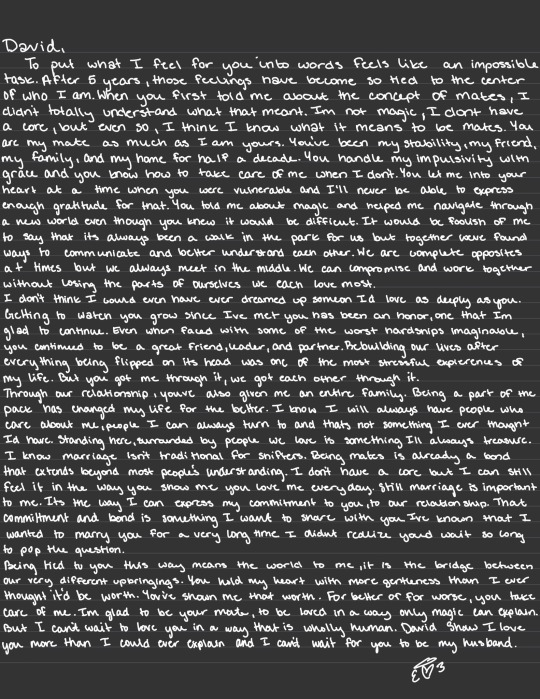 David,
To put what I feel for you into words feels like an impossible
task. After 5 years, those feelings have become so tied to the center
of who I am. When you first told me about the concept of mates, I
didn't totally understand what that meant. Im not magic, I dont have
a core, but even so, I think I know what it means to be mates. You
are my mate as much as I am yours. You've been my stability, my friend,
my family, and my home for half a decade. You handle my impulsivity with
grace and you know how to take care of me when I don't. You let me into your
heart at a time when you were vulnerable and I'll never be able to express
enough gratitude for that. You told me about magic and helped me navigate through
a new world even though you knew it would be difficult. It would be foolish of me
to say that its always been a walk in the park for us but together weve found
ways to communicate and better understand each other. We are complete opposites
at times but we always meet in the middle. We can compromise and work together
without losing the parts of ourselves we each love most.
I don't think I could even have ever dreamed up someon Id love as deeply as you.
Getting to watch you grow since Ive met you has been an honor, one that Im
glad to continue. Even when faced with some of the worst hardships imaginable,
you continued to be a great friend, leader, and partner. Rebuilding our lives after
everything being flipped on its head was one of the most stressful experiences of
my life. But you got me through it, we got each other through it.
Through our relationship, youve also given me an entire family. Being a part of the
pack has changed my life for the better. I know I will always have people who
care about me, people I can always turn to and thats not something I ever thought
Id have. Standing here, surrounded by people we love is something Ill always treasure.
I know marriage isn't traditional for shifters. Being mates is already a bond
that extends beyond most people's understanding. I don't have a core but I can still
feel it in the way you show me you love me everyday. Still marriage is important
to me. Its the way I can express my commitment to you, to our relationship. That
commitment and bond is something I want to share with you. Ive known that I
wanted to marry you for a very long time I didnt realize youd wait so long
to pop the question.
Being tied to you this way means the world to me, it is the bridge between
our very different upbringings. You hold my heart with more gentleness than I ever
thought it'd be worth. You've shown me that worth. For better or for worse, you take
care of me. Im glad to be your mate, to be loved in a way only magic can explain.
But I can't wait to love you in a way that is wholly human. David Shaw I love
you more than I could ever explain and I can't wait for you to be my husband.